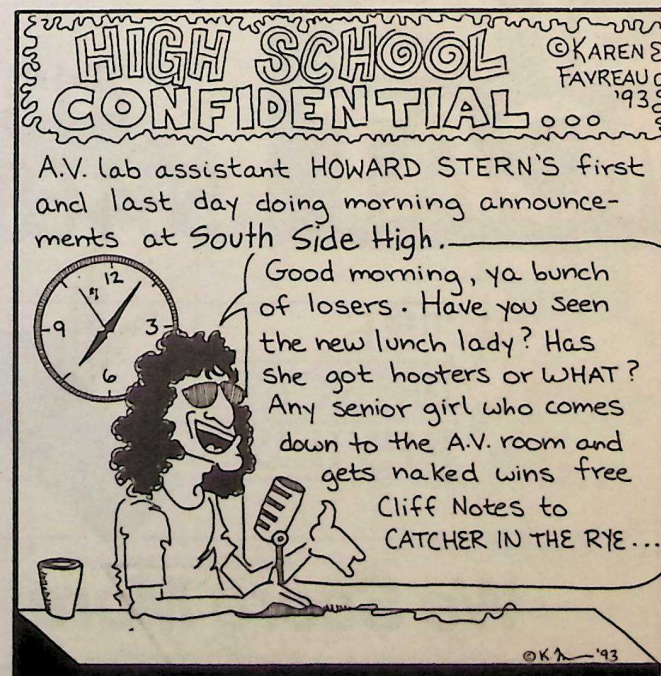 HIGH SCHOOL
CONFIDENTIAL...
©KAREN
FAVREAU
'93
A.V. lab assistant HOWARD STERN'S first
and last day doing morning announce-
ments at South Side High.
Good morning, ya bunch
of losers. Have you seen
the new lunch lady? Has
she got hooters or WHAT?
Any senior girl who comes
down to the A.V. room and
gets naked wins free
Cliff Notes to
CATCHER IN THE RYE...
12
9
3
6
©K '93